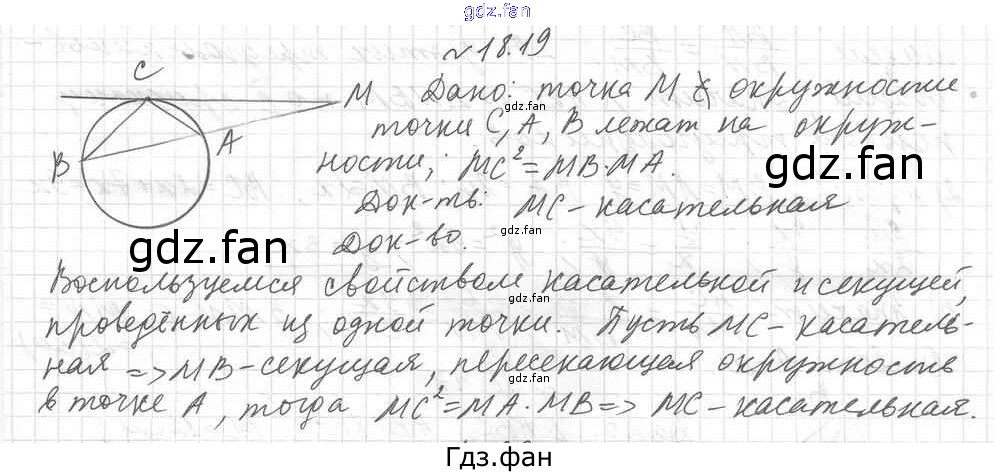 gdz.fan
№ 18.19
C
M
B
A
Дано: точка M ∉ окружности
gdz.fan
точки C, A, B лежат на окруж-
ности; MC²=MB·MA.
gdz.fan
Док-ть: MC - касательная
gdz.fan
gdz.fan
Док-во.
Воспользуемся свойством касательной и секущей,
gdz.fan
проведённых из одной точки. Пусть MC - касатель-
ная => MB - секущая, пересекающая окружность
gdz.fan
в точке A, тогда MC²=MA·MB => MC - касательная.
Гдз.фан